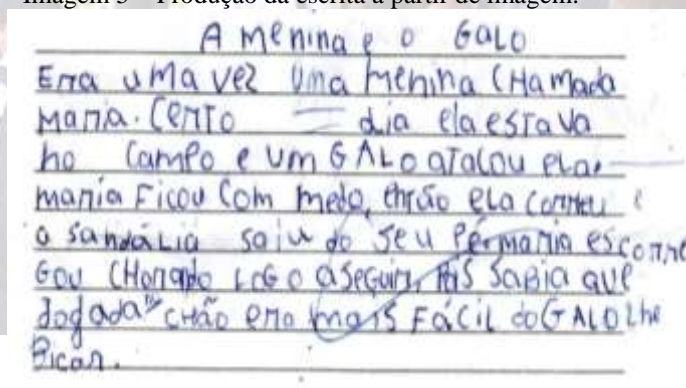 Imagem 3 – Produção da escrita a partir de imagem.
A menina e o GALO
Era uma vez uma menina CHamada
Maria. Certo dia ela estava
no Campo e um GALO atacou ela.
maria Ficou Com medo, então ela correu e
a sandália saiu do seu Pé. maria escorre
Gou CHorando LoGo a seguir, sabia que
chão era mais Fácil do GALO lhe
Bicar.